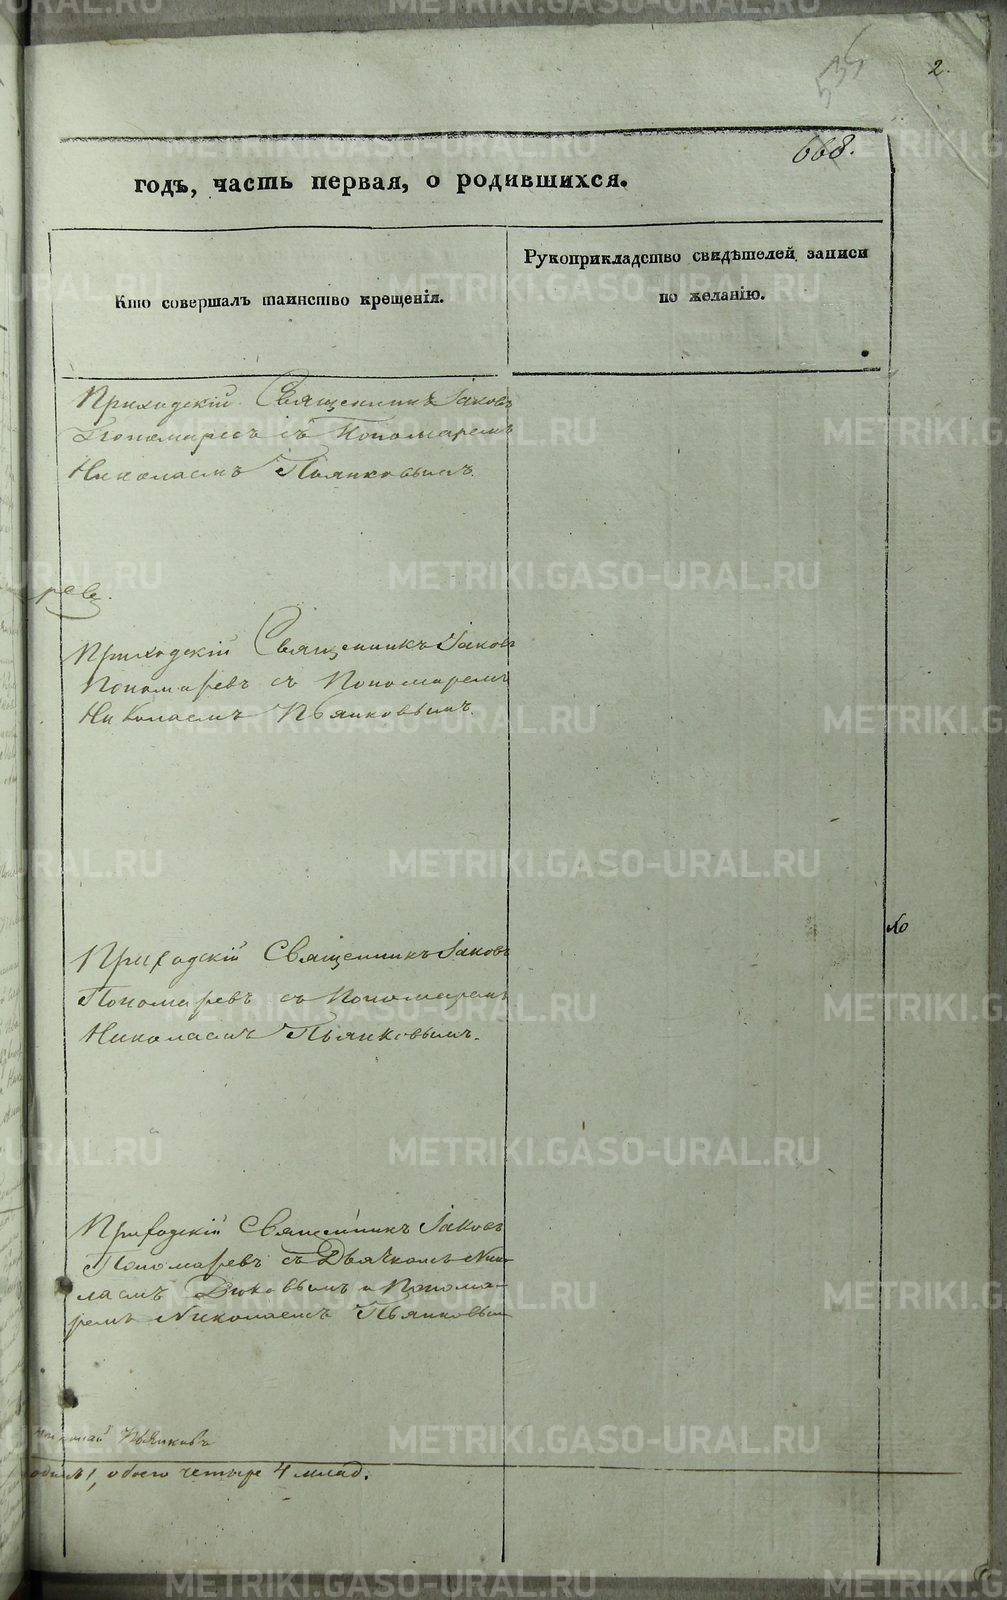 2.
668.
годъ, часть первая, о родившихся.
Кто совершалъ таинство крещенія.
Рукоприкладство свидѣтелей записи
по желанію.
Приходскій Священникъ Іаковъ
Пономаревъ съ Пономаремъ
Николаемъ Пьянковымъ.
Приходскій Священникъ Іаковъ
Пономаревъ съ Пономаремъ
Николаемъ Пьянковымъ.
Приходскій Священникъ Іаковъ
Пономаревъ съ Пономаремъ
Николаемъ Пьянковымъ.
Приходскій Священникъ Іаковъ
Пономаревъ съ Дьячкомъ Нико-
лаемъ и Понома-
ремъ Николаемъ Пьянковым
Николай Пьянковъ
1, обоего четыре 4 млад.
METRIKI.GASO-URAL.RU